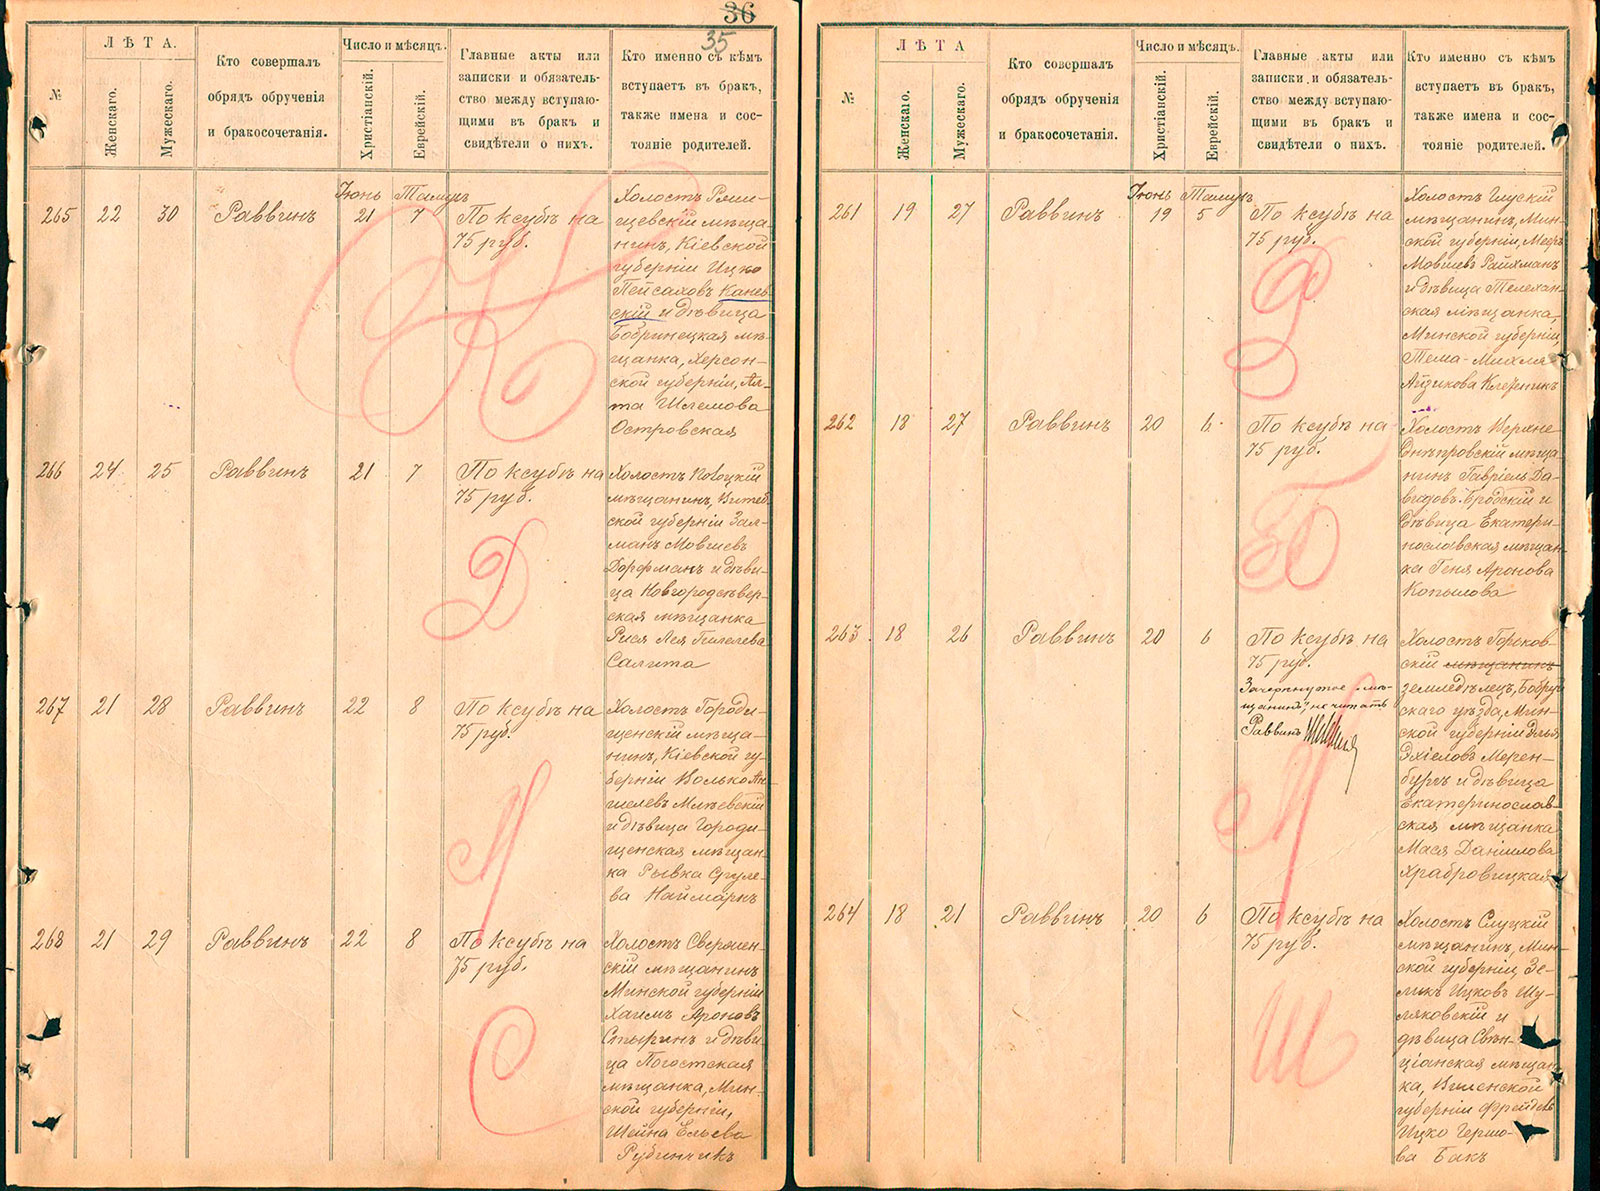 36
35
№
ЛѢТА.
Женскаго.
Мужескаго.
Кто совершалъ
обрядъ обрученія
и бракосочетанія.
Число и мѣсяцъ.
Христіанскій.
Еврейскій.
Главные акты или
записки и обязатель-
ство между вступаю-
щими въ бракъ и
свидѣтели о нихъ.
Кто именно съ кѣмъ
вступаетъ въ бракъ,
также имена и сос-
тояніе родителей.
265 22 30 Раввинъ
Іюнь Тамузъ
21 7
По ксубѣ на
75 руб.
Холостъ
щевскій мѣща-
нинъ, Кіевской
губерніи Ицко
Пейсаховъ Канев-
скій и дѣвица
Бобринецкая мѣ-
щанка, Херсон-
ской губерніи,
та Шлемова
Островская
К
266 24 25 Раввинъ 21 7
По ксубѣ на
75 руб.
Холостъ
мѣщанинъ, Витеб-
ской губерніи Зал-
манъ Мовшевъ
Дорфманъ и дѣви-
ца Новгородсѣвер-
ская мѣщанка
Рися Лея
Салита
Д
267 21 28 Раввинъ 22 8
По ксубѣ на
75 руб.
Холостъ Городи-
щенскій мѣща-
нинъ, Кіевской гу-
берніи Волько Ан-
шелевъ Млѣевскій
и дѣвица Городи-
щенская мѣщан-
ка Рывка Сруле-
ва Наймаркъ
М
268 21 29 Раввинъ 22 8
По ксубѣ на
75 руб.
Холостъ Свержен-
скій мѣщанинъ
Минской губерніи
Хаимъ Ароновъ
Спыринъ и дѣви-
ца Погостская
мѣщанка, Мин-
ской губерніи,
Шейна Ельева
Рубинчикъ
С
№
ЛѢТА
Женскаго.
Мужескаго.
Кто совершалъ
обрядъ обрученія
и бракосочетанія.
Число и мѣсяцъ.
Христіанскій.
Еврейскій.
Главные акты или
записки и обязатель-
ство между вступаю-
щими въ бракъ и
свидѣтели о нихъ.
Кто именно съ кѣмъ
вступаетъ въ бракъ,
также имена и сос-
тояніе родителей.
261 19 27 Раввинъ
Іюнь Тамузъ
19 5
По ксубѣ на
75 руб.
Холостъ Глускій
мѣщанинъ, Мин-
ской губерніи, Мееръ
Мовшевъ Райхманъ
и дѣвица Телехан-
ская мѣщанка,
Минской губерніи
Тема-Михля
Айзикова
Р
262 18 27 Раввинъ 20 6
По ксубѣ на
75 руб.
Холостъ Верхне-
днѣпровскій мѣща-
нинъ Гавріель Да-
видовъ Бродскій и
дѣвица Екатери-
нославская мѣщан-
ка Геня Аронова
Копылова
Б
263 18 26 Раввинъ 20 6
По ксубѣ на
75 руб.
Зачеркнутое „мѣ-
щанинъ“ не читать
Раввинъ
Холостъ Горьков-
скій мѣщанинъ
земледѣлецъ, Бобруй
скаго уѣзда, Мин-
ской губерніи Элья
Эхіеловъ Мерен-
бургъ и дѣвица
Екатеринослав-
ская мѣщанка
Мася Даниилова
Храбровицкая
М
264 18 21 Раввинъ 20 6
По ксубѣ на
75 руб.
Холостъ Слуцкій
мѣщанинъ, Мин-
ской губерніи, Зе-
ликъ Ицковъ Шу-
ляковскій и
дѣвица Свѣн-
ціанская мѣщан-
ка, Виленской
губерніи
Ицко Гершо-
ва Бакъ
Ш